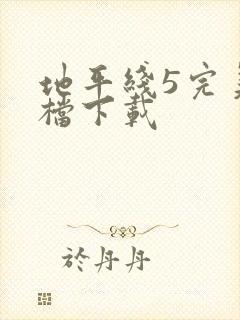 地平綫5完
檔下載
於丹丹